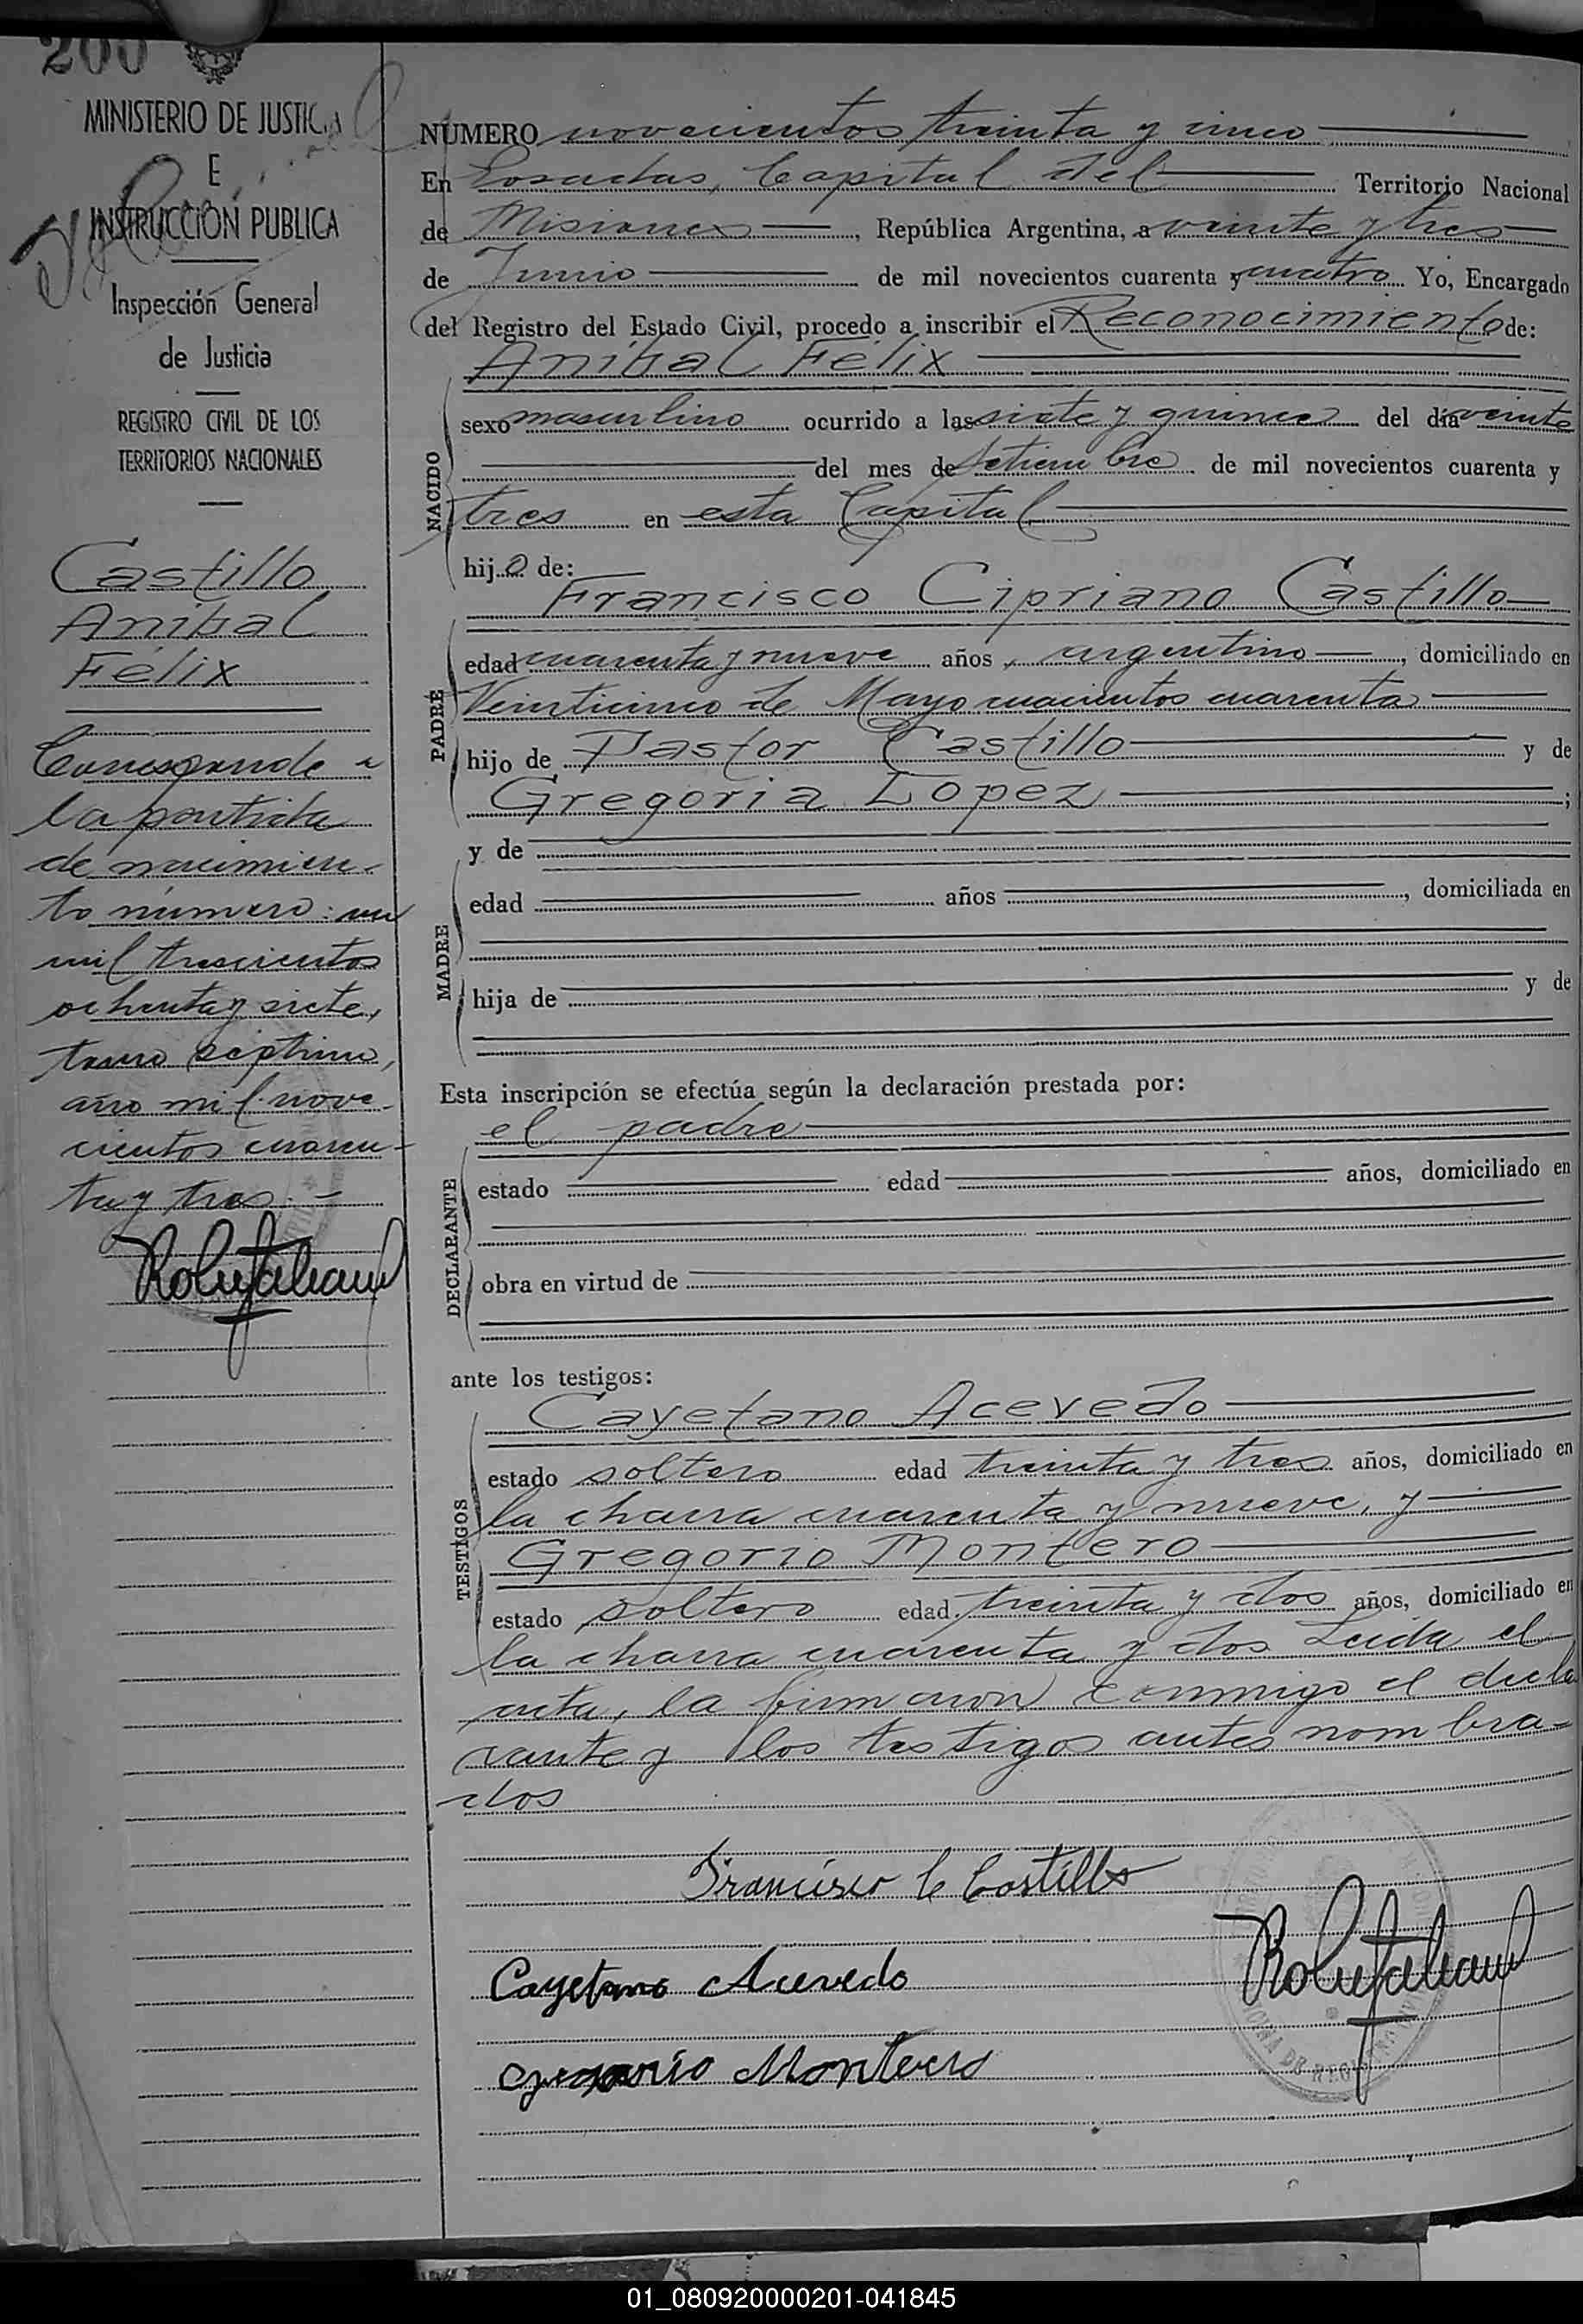 200
MINISTERIO DE JUSTICIA
E
INSTRUCCIÓN PUBLICA
Inspección General
de Justicia
REGISTRO CIVIL DE LOS
TERRITORIOS NACIONALES
Castillo
Aníbal
Félix
Corresponde a
la partida
de nacimien-
to número: un
mil trescientos
ochenta y siete,
tomo séptimo,
año mil nove-
cientos cuaren-
ta y tres.-
NUMERO novecientos treinta y cinco
En Posadas, Capital del Territorio Nacional
de Misiones, República Argentina, a veinte y tres
de Junio de mil novecientos cuarenta y cuatro Yo, Encargado
del Registro del Estado Civil, procedo a inscribir el Reconocimiento de:
Aníbal Félix
NACIDO
sexo masculino ocurrido a las siete y quince del día veinte
del mes de Setiembre de mil novecientos cuarenta y
tres en esta Capital
hijo de:
Francisco Cipriano Castillo
PADRE
edad cuarenta y nueve años, argentino, domiciliado en
Veinticinco de Mayo cuacientos cuarenta
hijo de Pastor Castillo y de
Gregoria Lopez ;
y de
MADRE
edad años , domiciliada en
hija de y de
Esta inscripción se efectúa según la declaración prestada por:
el padre
DECLARANTE
estado edad años, domiciliado en
obra en virtud de
ante los testigos:
Cayetano Acevedo
TESTIGOS
estado soltero edad treinta y tres años, domiciliado en
la chacra cuarenta y nueve, y
Gregorio Montero
estado soltero edad treinta y dos años, domiciliado en
la chacra cuarenta y dos Leida el
acta, la firmaron conmigo el decla
rante y los testigos antes nombra=
dos
Francisco C Castillo
Cayetano Acevedo
Gregorio Montero
01_080920000201-041845